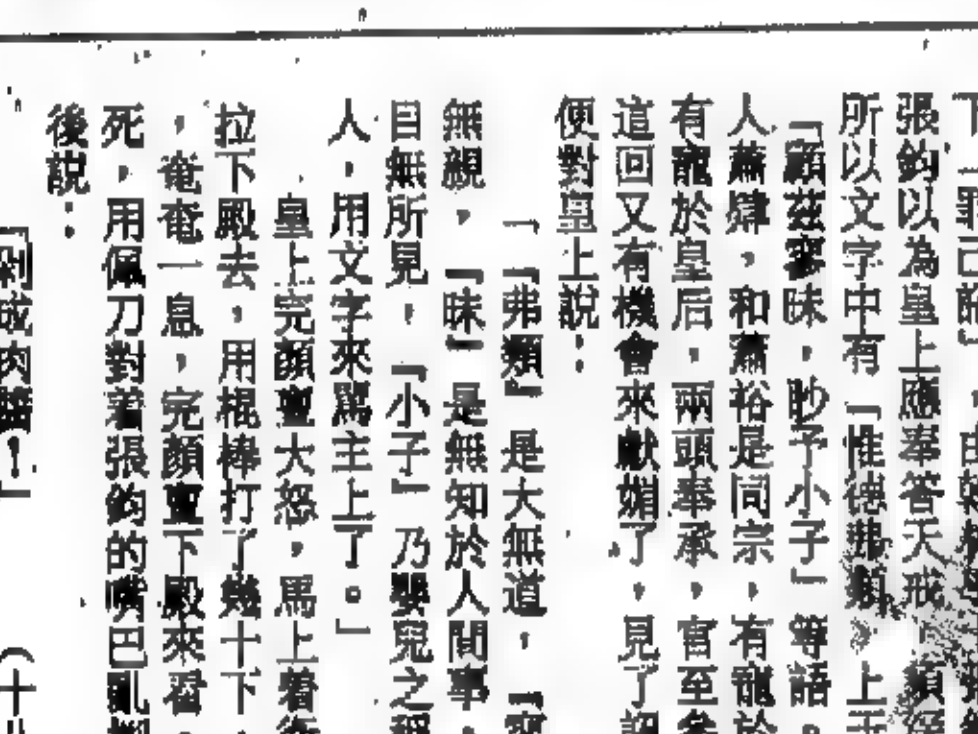 張鈞以為皇上應奉答天戒
所以文字中有「惟德弗類」。上
「顧茲寡昧，眇予小子」等語。
人蕭肄，和蕭裕是同宗，有寵於
有寵於皇后，兩頭奉承，官至
這回又有機會來獻媚了，見了
便對皇上說：
「『弗類』是大無道，『寡
無親，『昧』是無知於人間事，
目無所見，『小子』乃嬰兒之稱
人，用文字來罵主上了。」
皇上完顏亶大怒，馬上着
拉下殿去，用棍棒打了幾十下，
，奄奄一息，完顏亶下殿來看，
死，用佩刀對着張鈞的嘴巴亂
後說：
「剁成肉醬！」 （十